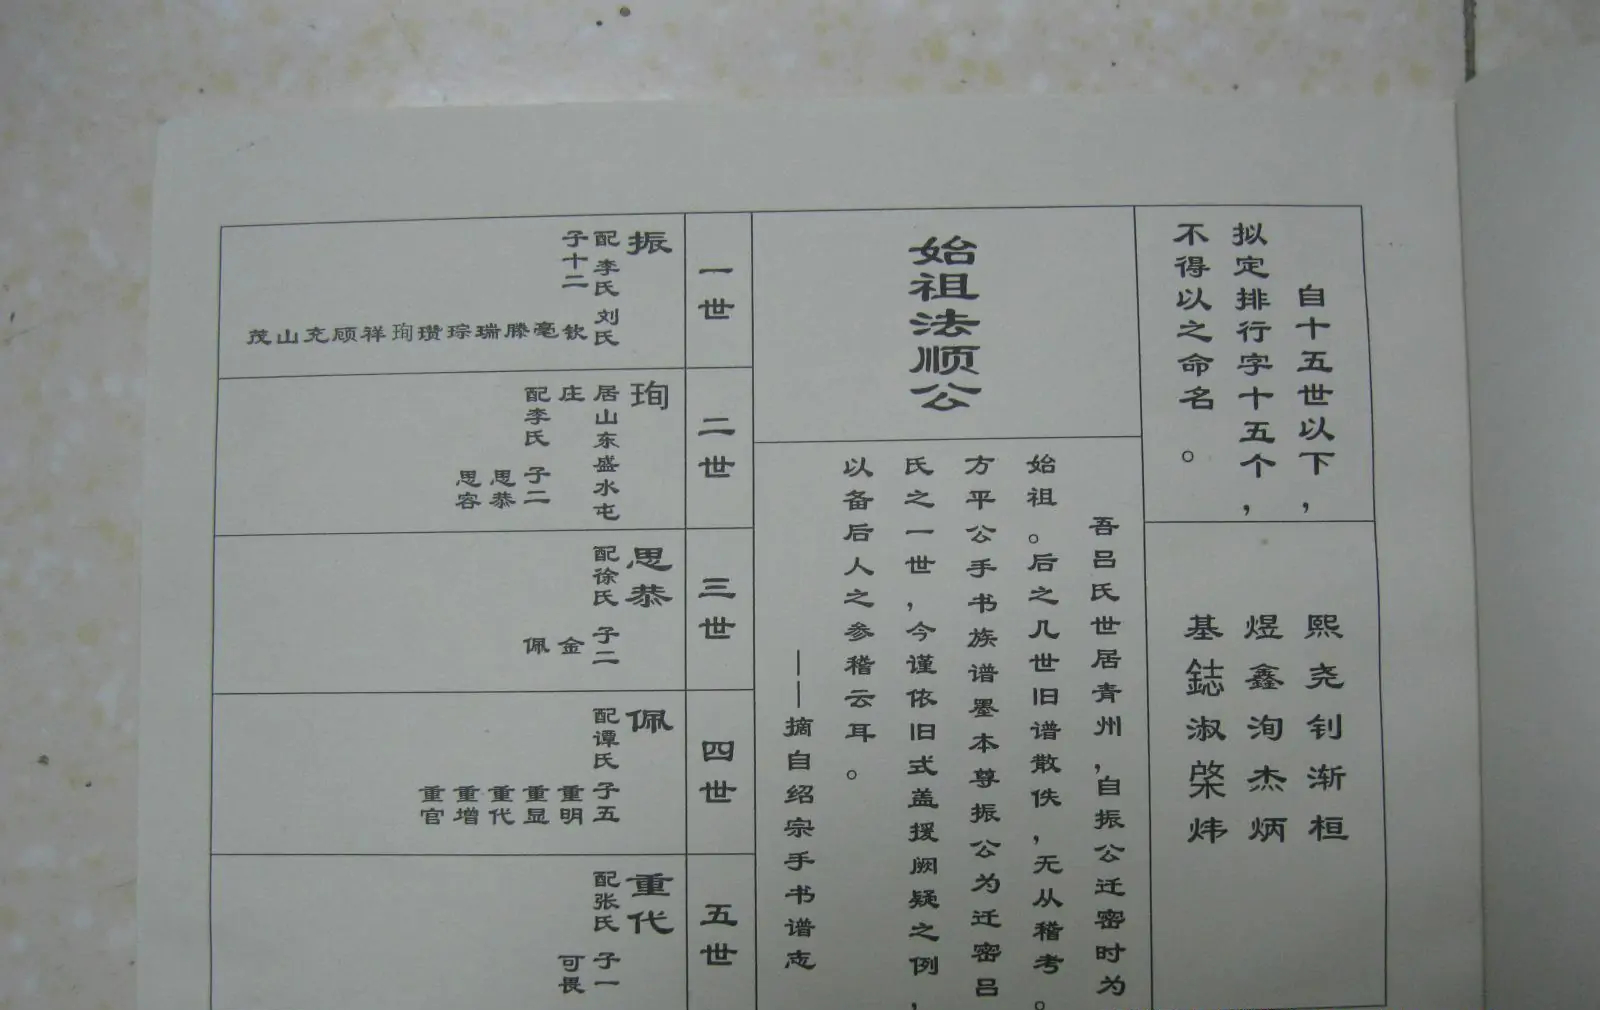 自十五世以下，
拟定排行字十五个，
不得以之命名。
熙尧钊渐桓
煜鑫洵杰炳
基鋕淑棨炜
始祖法顺公
吾吕氏世居青州，自振公迁密时为
始祖。后之几世旧谱散佚，无从稽考。
方平公手书族谱墨本尊振公为迁密吕
氏之一世，今谨依旧式盖援阙疑之例，
以备后人之参稽云耳。
——摘自绍宗手书谱志
一世
振
配李氏刘氏
子十二
钦毫滕瑞琮瓒珣祥顾充山茂
二世
珣
居山东盛水屯
庄
配李氏 子二
思恭
思容
三世
思恭
配徐氏 子二
金
佩
四世
佩
配谭氏 子五
重明
重显
重代
重增
重官
五世
重代
配张氏 子一
可畏